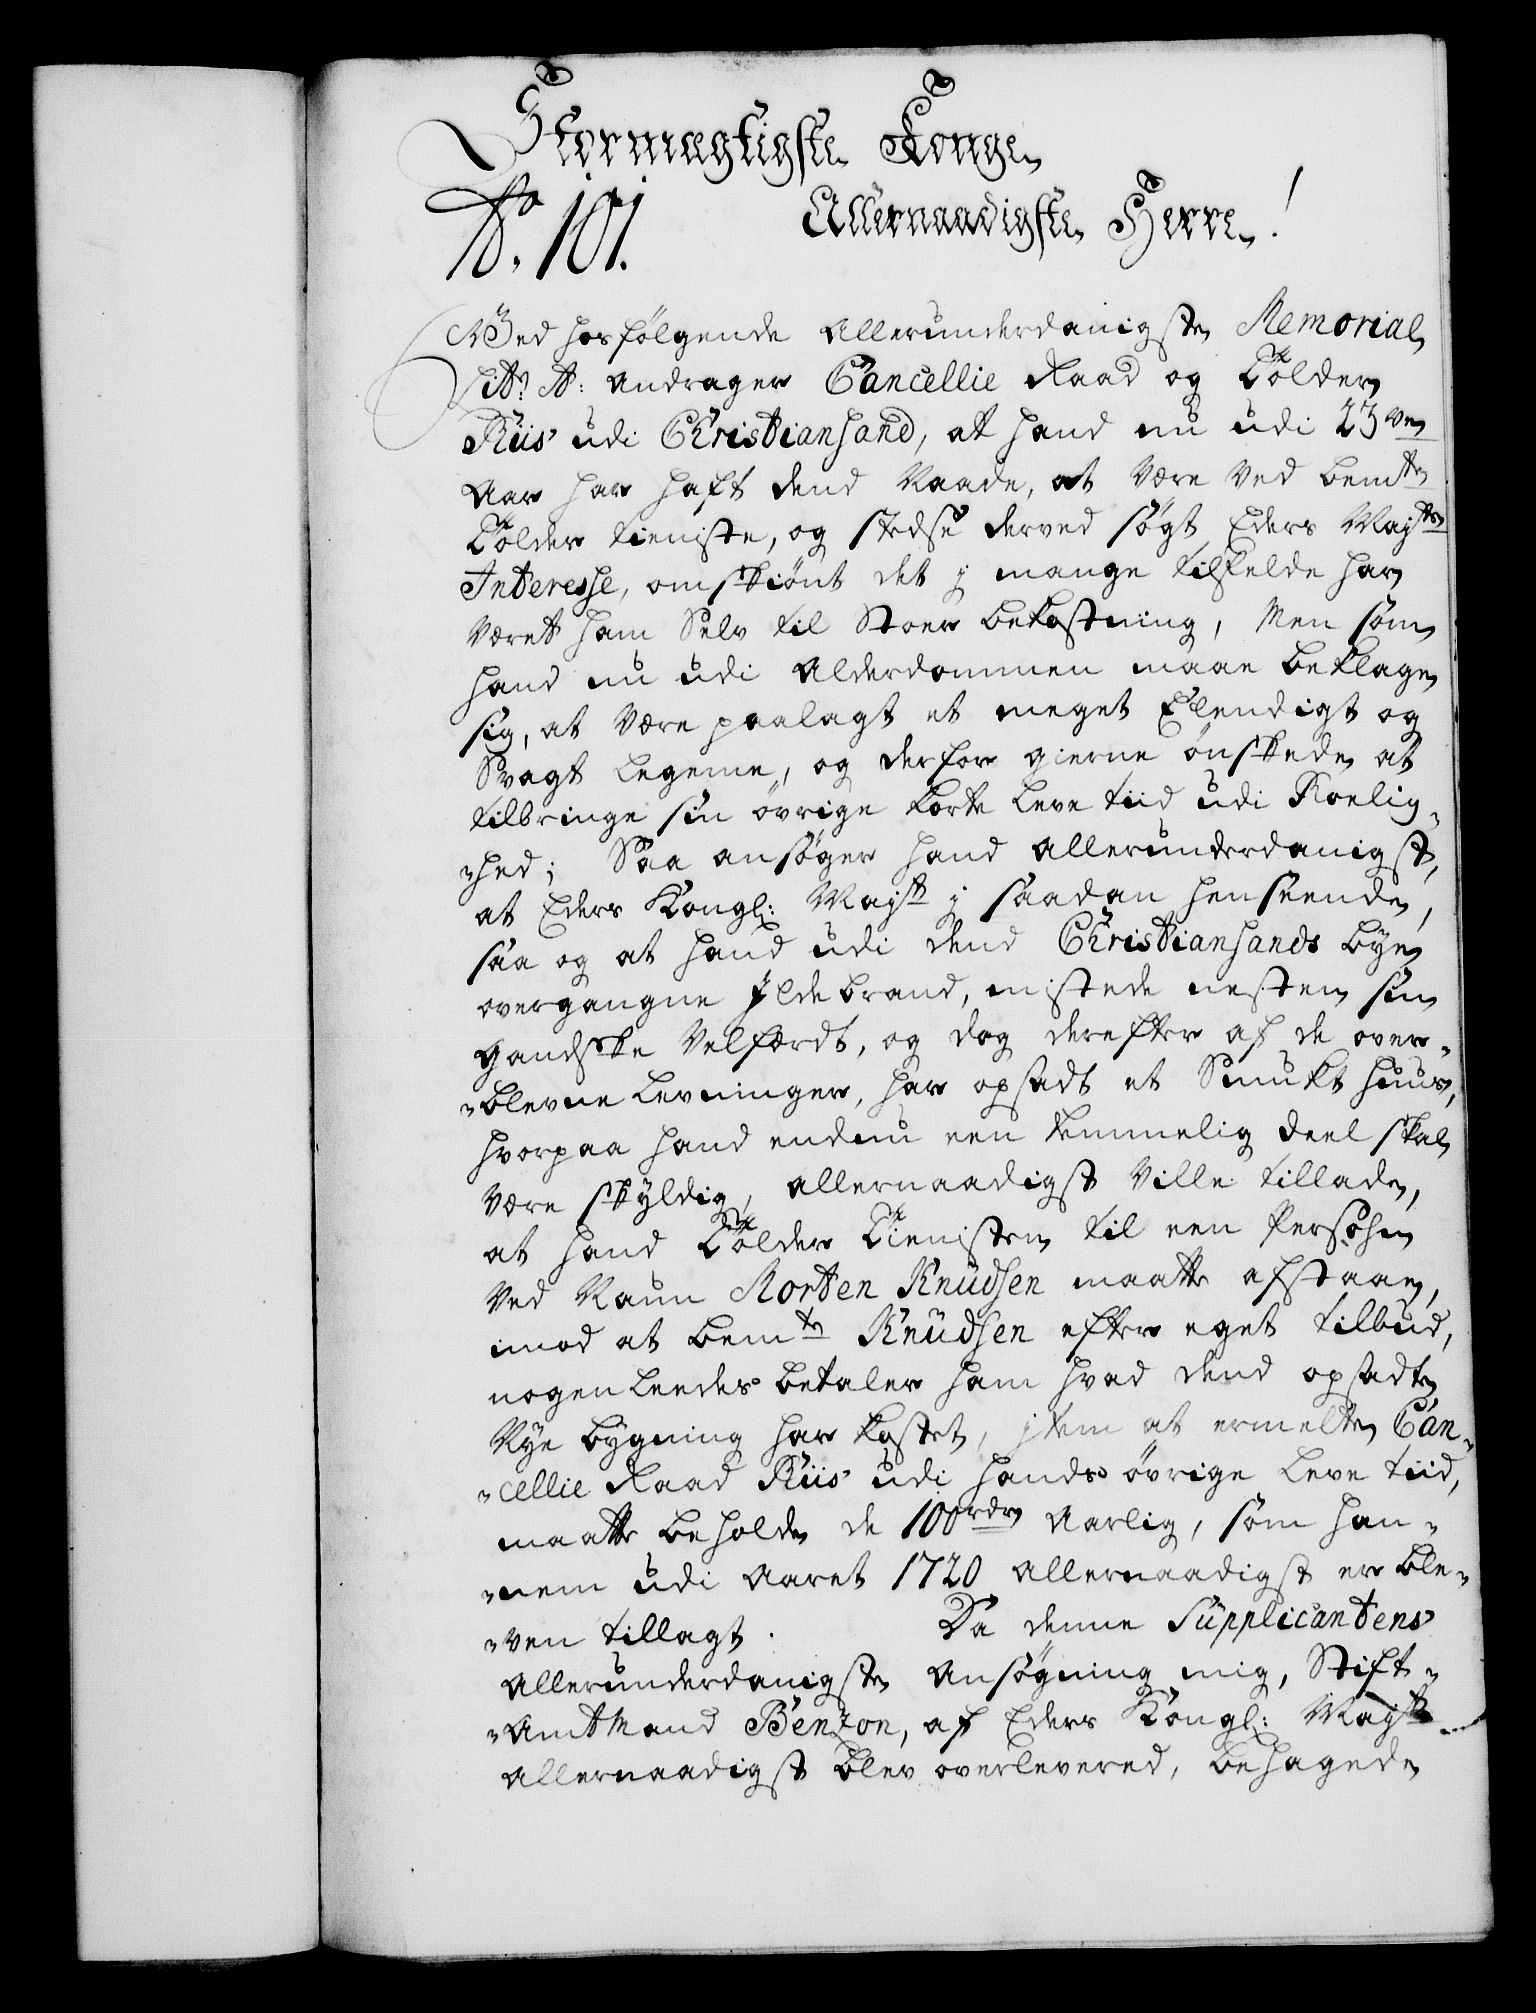 Stormægtigste Konge,
No. 101. Allernaadigste Herre!
Ved hosfølgende allerunderdanigste Memorial
Litr: A: andrager Cancellie Raad og Tolder
Riis udi Christiansand, at hand nu udi 23ve
Aar har haft dend Naade, at være ved bemte
Tolder tieniste, og stedse derved søgt Eders Mayts
Interesse, omskiønt det j mange tilfelde har
været ham Selv til Stoer bekostning, Men som
hand nu udi Alderdommen maae beklage
sig, at være paalagt et meget Elendigt og
Svagt legeme, og derfor gierne ønskede at
tilbringe sin øvrige korte leve tiid udi Roelig-
-hed; Saa ansøger hand allerunderdanigst,
at Eders Kongl: Mayst j saadan henseende,
saa og at hand udi dend Christiansands bye
overgangne Jldebrand, mistede nesten sin
gandske Velfærdt, og dog derefter af de over-
-blevne levninger, har opsadt et Smukt huus,
hvorpaa hand endnu een temmelig deel skal
være skyldig, allernaadigst ville tillade,
at hand Tolder Tienisten til een Persohn
ved Naun Morten Knudsen maatte afstaae,
imod at bemte Knudsen efter eget tilbud,
nogenleedes betaler ham hvad dend opsadte
Nye bygning har kostet, jtem at ermelte Can-
-cellie Raad Riis udi hands øvrige leve tiid,
maatte beholde de 100rdr Aarlig, som han-
-nem udi Aaret 1720 allernaadigst er ble-
-ven tillagt. Da denne Supplicantens
allerunderdanigste Ansøgning mig, Stift-
-Amtmand Benzon, af Eders Kongl: Mayst
allernaadigst blev overlevered, behagede